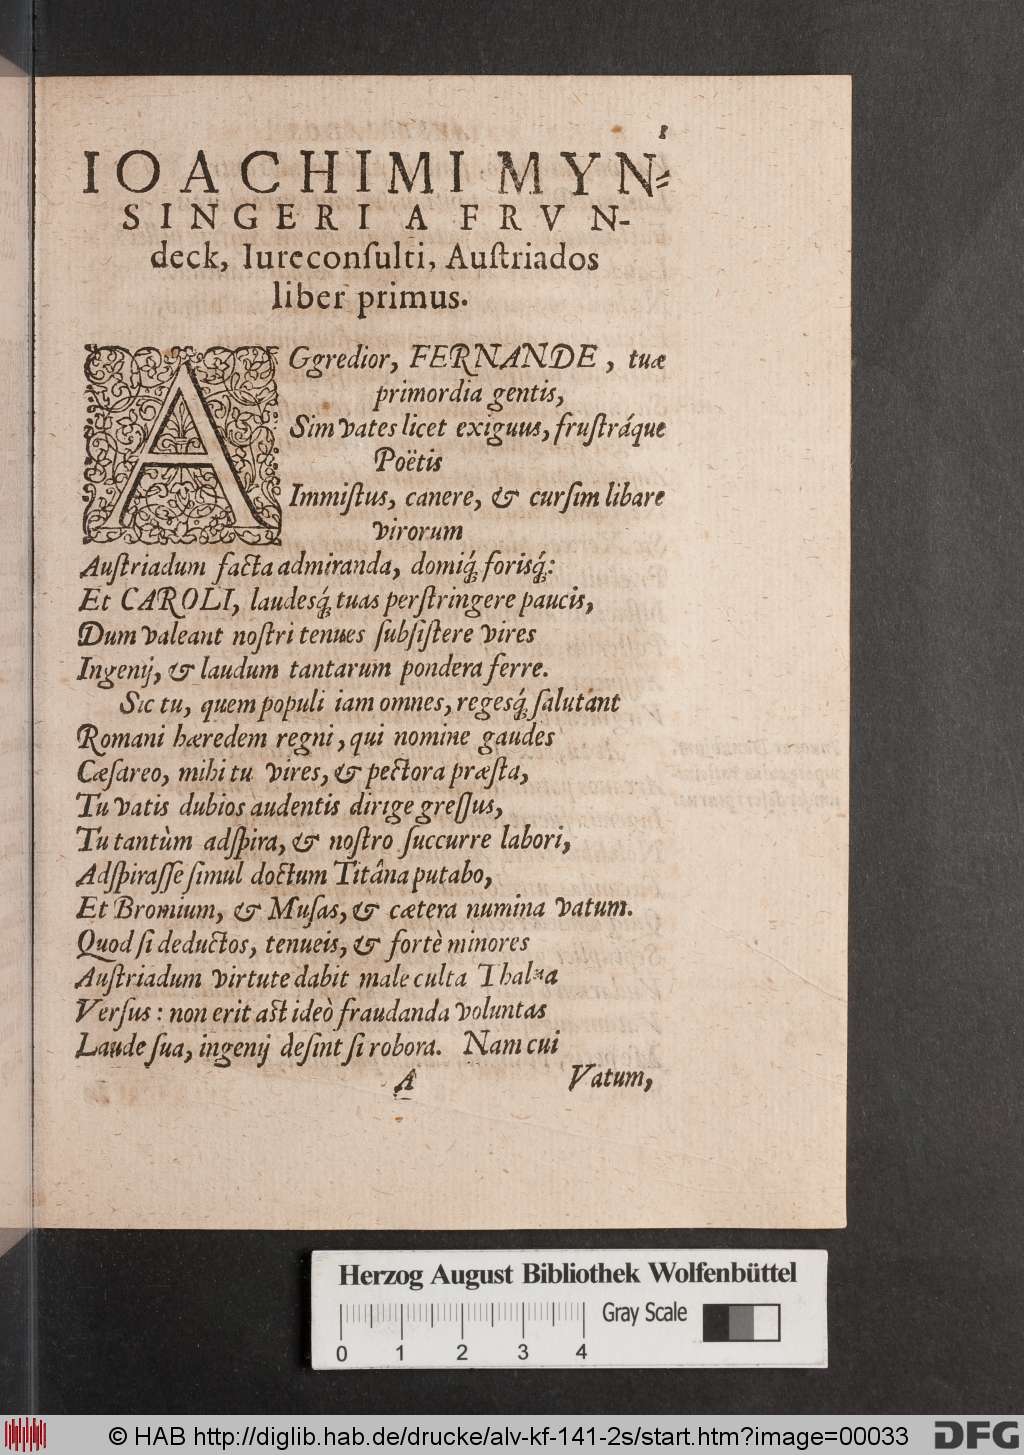 1
IOACHIMI MYN⸗
SINGERI A FRVN-
deck, Iureconſulti, Auſtriados
liber primus.
AGgredior, FERNANDE, tuæ
primordia gentis,
Sim vates licet exiguus, fruſtráque
Poëtis
Immiſtus, canere, & curſim libare
virorum
Auſtriadum facta admiranda, domiq́; forisq́;:
Et CAROLI, laudesq́; tuas perſtringere paucis,
Dum valeant noſtri tenues ſubſiſtere vires
Ingenij, & laudum tantarum pondera ferre.
Sic tu, quem populi iam omnes, regesq́; ſalutant
Romani hæredem regni, qui nomine gaudes
Cæſareo, mihi tu vires, & pectora præſta,
Tu vatis dubios audentis dirige greſſus,
Tu tantùm adſpira, & noſtro ſuccurre labori,
Adſpiraſſe ſimul doctum Titâna putabo,
Et Bromium, & Muſas, & cætera numina vatum.
Quod ſi deductos, tenueis, & fortè minores
Auſtriadum virtute dabit male culta Thalia
Verſus: non erit aſt ideò fraudanda voluntas
Laude ſua, ingenij deſint ſi robora. Nam cui
A Vatum,
Herzog August Bibliothek Wolfenbüttel
Gray Scale
0 1 2 3 4
© HAB http://diglib.hab.de/drucke/alv-kf-141-2s/start.htm?image=00033
DFG